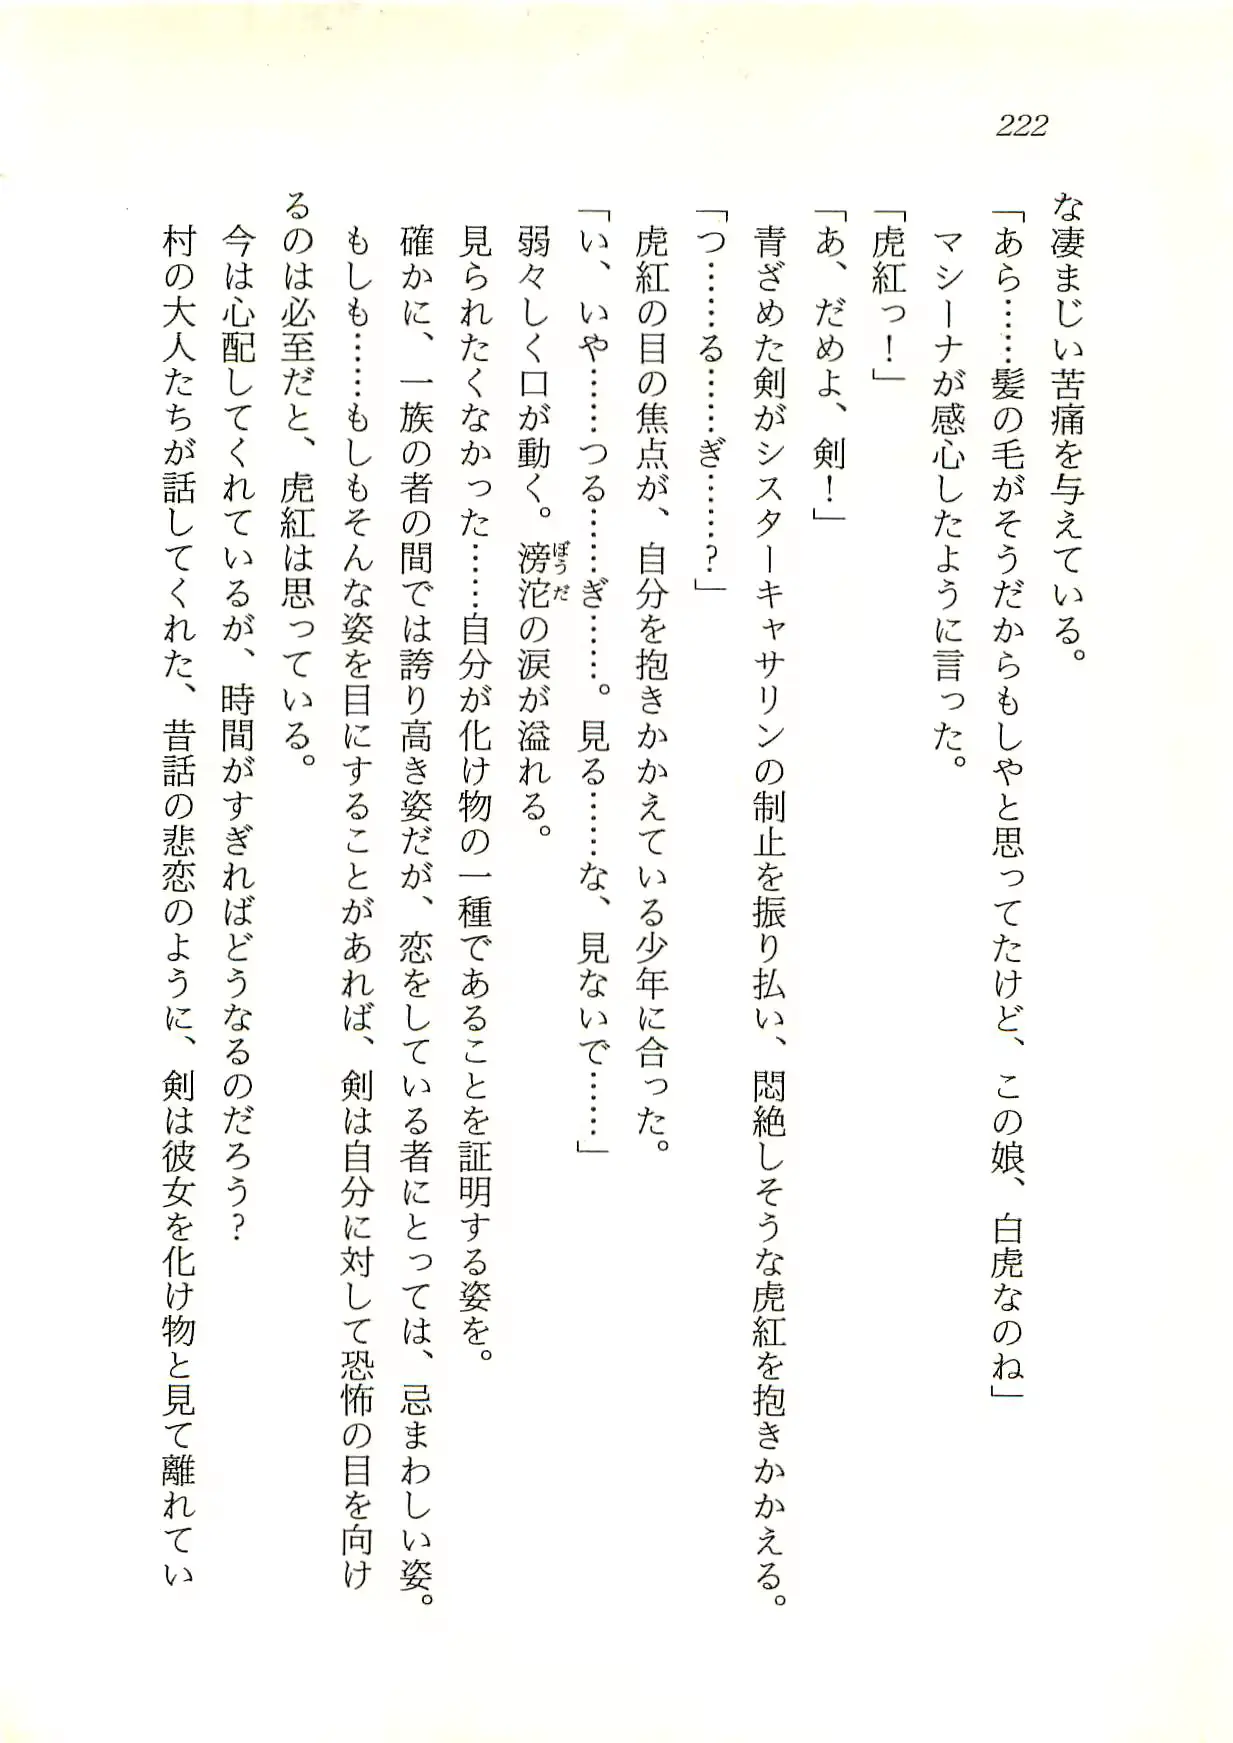 222
な凄まじい苦痛を与えている。
「あら……髪の毛がそうだからもしやと思ってたけど、この娘、白虎なのね」
マシーナが感心したように言った。
「虎紅っ！」
「あ、だめよ、剣！」
青ざめた剣がシスターキャサリンの制止を振り払い、悶絶しそうな虎紅を抱きかかえる。
「つ……る……ぎ……？」
虎紅の目の焦点が、自分を抱きかかえている少年に合った。
「い、いや……つる……ぎ……。見る……な、見ないで……」
弱々しく口が動く。滂沱の涙が溢れる。
見られたくなかった……自分が化け物の一種であることを証明する姿を。
確かに、一族の者の間では誇り高き姿だが、恋をしている者にとっては、忌まわしい姿。
もしも……もしもそんな姿を目にすることがあれば、剣は自分に対して恐怖の目を向け
るのは必至だと、虎紅は思っている。
今は心配してくれているが、時間がすぎればどうなるのだろう？
村の大人たちが話してくれた、昔話の悲恋のように、剣は彼女を化け物と見て離れてい